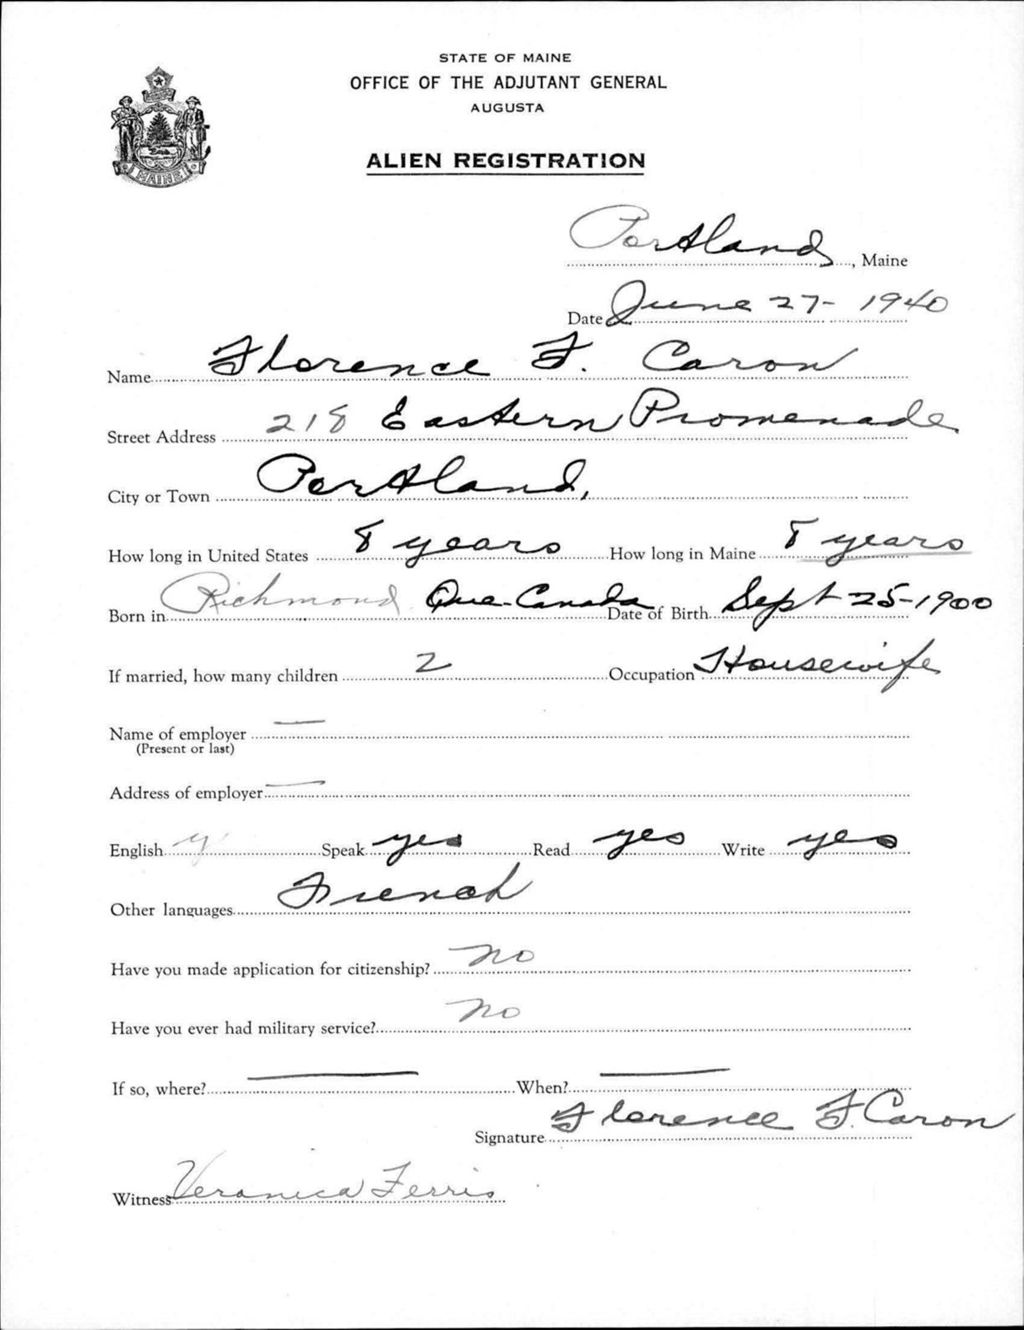 STATE OF MAINE
OFFICE OF THE ADJUTANT GENERAL
AUGUSTA
ALIEN REGISTRATION
MAINE
Portland, Maine
Date June 27-1940
Name Florence F. Caron
Street Address 218 Eastern Promenade
City or Town Portland,
How long in United States 8 years How long in Maine 8 years
Born in Richmond Que-Canada Date of Birth Sept 25-1900
If married, how many children 2 Occupation Housewife
Name of employer —
(Present or last)
Address of employer —
English y Speak yes Read yes Write yes
Other languages French
Have you made application for citizenship? no
Have you ever had military service? no
If so, where? — When? —
Signature Florence F. Caron
Witness Veronica Ferris